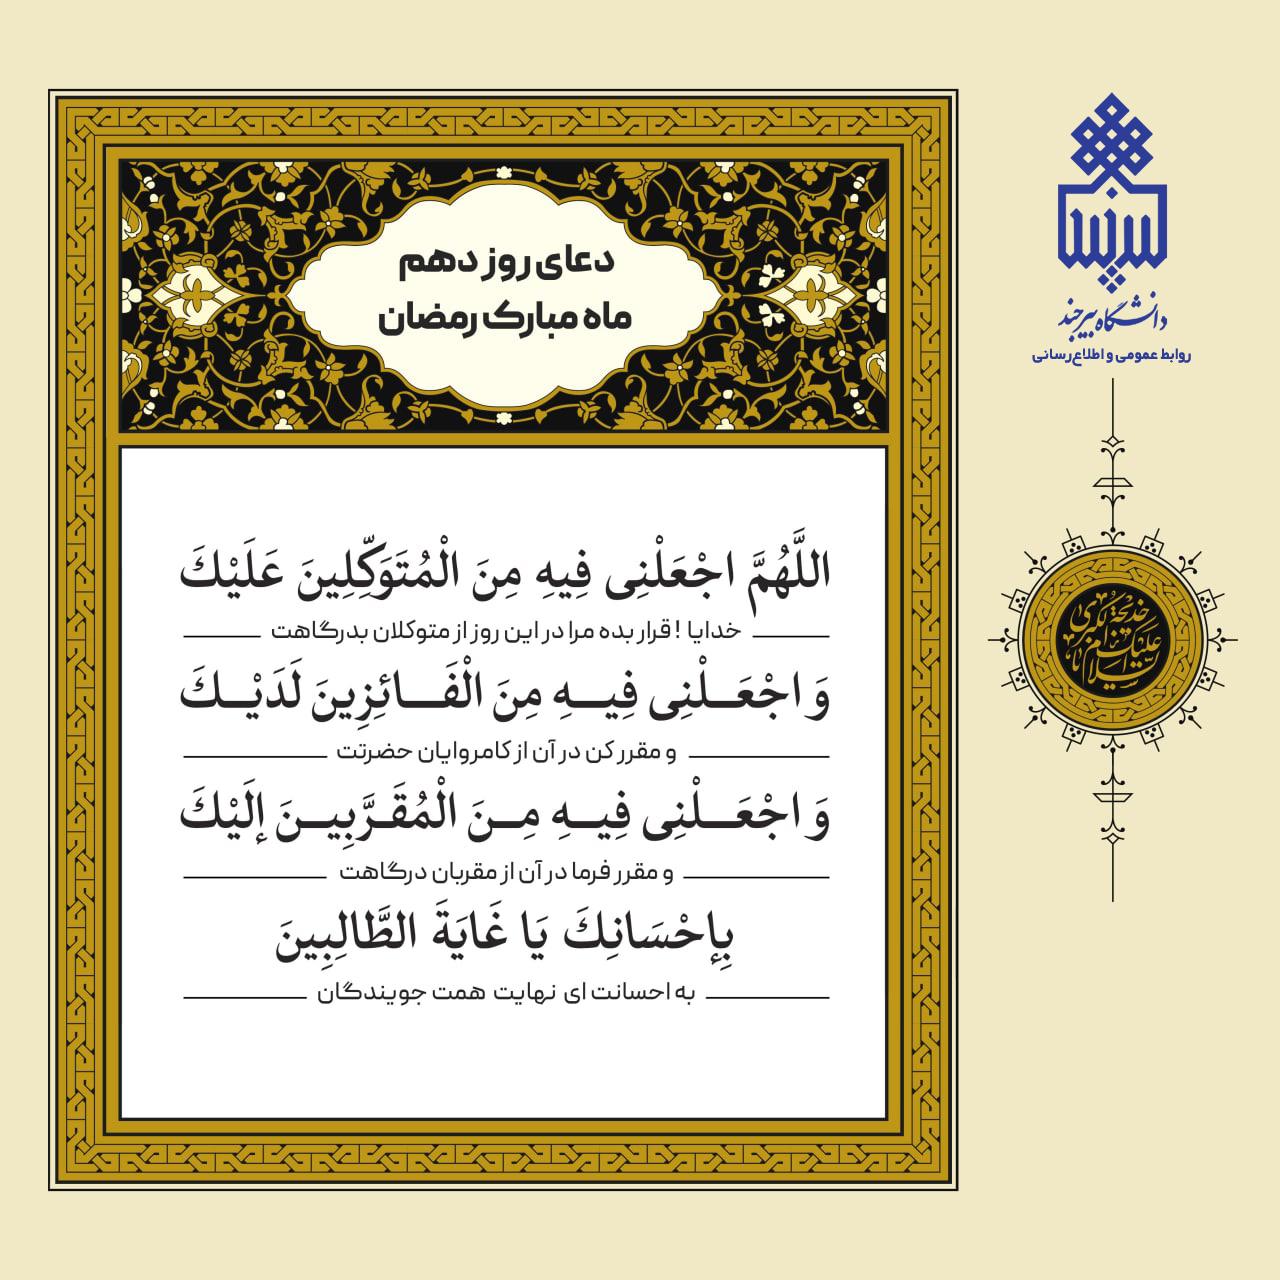 دعای روز دهم
ماه مبارک رمضان
اللَّهُمَّ اجْعَلْنِی فِیهِ مِنَ الْمُتَوَكِّلِینَ عَلَیْكَ
خدایا ! قرار بده مرا در این روز از متوکلان بدرگاهت
وَ اجْعَـــلْنِی فِیـــهِ مِنَ الْفَـــائِزِینَ لَدَیْـــكَ
و مقرر کن در آن از کامروایان حضرتت
وَ اجْعَـــلْنِی فِیـــهِ مِـــنَ الْمُقَـرَّبِیـــنَ إلَیْكَ
و مقرر فرما در آن از مقربان درگاهت
بِإحْسَانِكَ یَا غَایَةَ الطَّالِبِینَ
به احسانت ای نهایت همت جویندگان
دانشگاه بیرجند
روابط عمومی و اطلاع‌رسانی